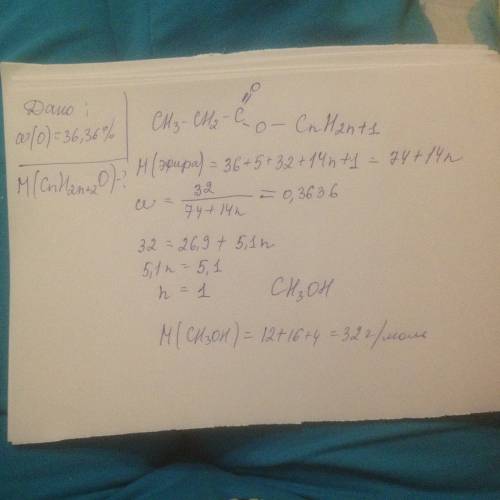 Дано:
ω(O)=36,36%
M(CnH2n+2O)-?
O
CH3-CH2-C
O-CnH2n+1
M(эфира)=36+5+32+14n+1=74+14n
ω=32/(74+14n)=0,3636
32=26,9+5,1n
5,1n=5,1
n=1 CH3OH
M(CH3OH)=12+16+4=32г/моль